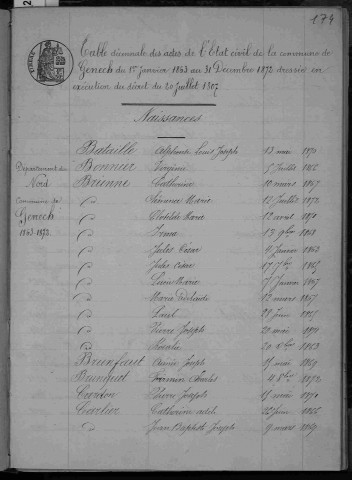 174
Table décennale des actes de l'Etat civil de la commune de
Genech du 1er Janvier 1863 au 31 Décembre 1872 dressée en
exécution du décret du 20 Juillet 1807
Naissances
Département du
Nord
Commune de
Genech
1863-1872
Bataille Alphonse Louis Joseph 13 mai
Bonnier Virginie 5 Juillet
Brienne Catherine 10 mars 1867
" Marie 12 Juillet 1872
" Clotilde Marie 12 avril 1870
" Irma 13 9bre 1868
" Jules César 9 Janvier
" Jules César 17 7bre 1865
" Marie 7 Janvier 1867
" Maria 12 mars 1867
" Paul 21 Juin
" Pierre Joseph 20 mai
" Rosalie 29 1863
Brunfaut Joseph 15 mai 1869
Brunquet Charles 4 1872
Cardon Pierre Joseph 15 mai 1870
Carlier Catherine Juin
" Jean Baptiste Joseph 9 mars